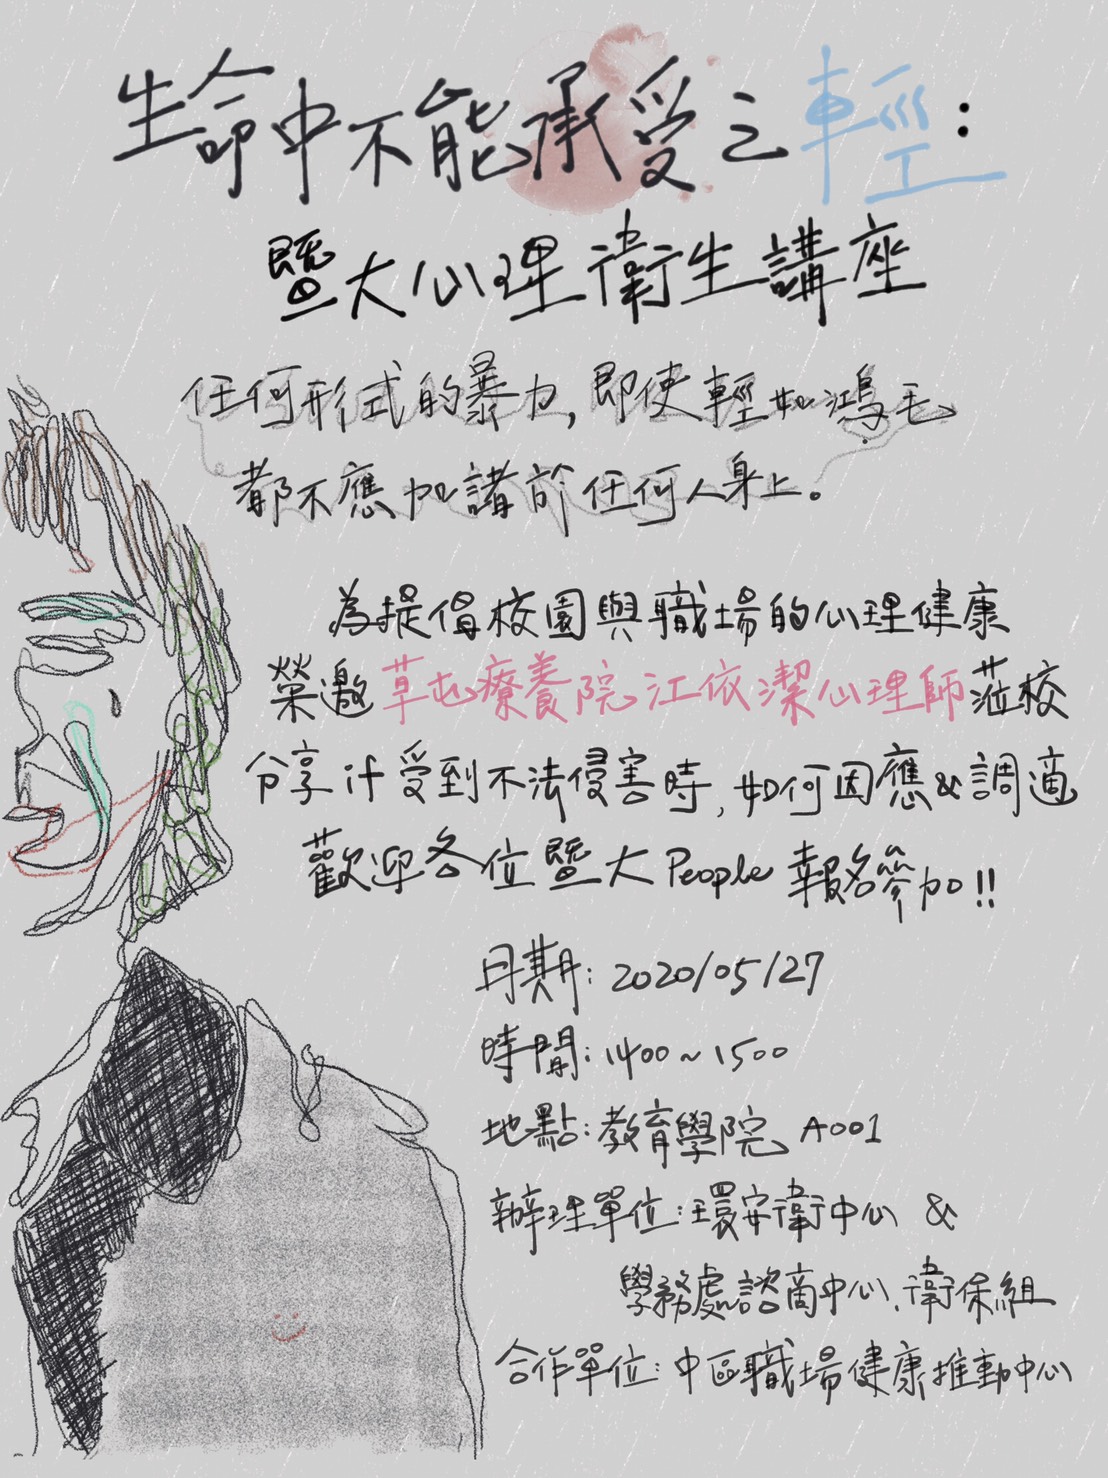 生命中不能承受之輕：
暨大心理衛生講座
任何形式的暴力，即使輕如鴻毛
都不應加諸於任何人身上。
為提倡校園與職場的心理健康
榮邀草屯療養院江依潔心理師蒞校
分享if受到不法侵害時，如何因應&調適
歡迎各位暨大People報名參加!!
日期：2020/05/27
時間：1400~1500
地點：教育學院A001
辦理單位：環安衛中心 &
學務處諮商中心、衛保組
合作單位：中區職場健康推動中心